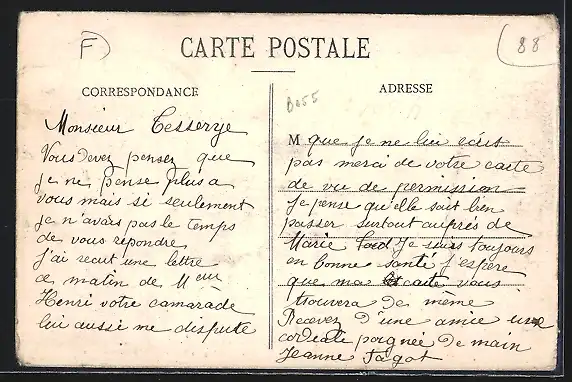 F
88
CARTE POSTALE
CORRESPONDANCE
Monsieur Tesserye
Vous devez penser que
je ne pense plus a
vous mais si seulement
je n'avais pas le temps
de vous répondre
j'ai recut une lettre
ce matin de Meur
Henri votre camarade
lui aussi me dispute
ADRESSE
B055
M que je ne lui écris
pas merci de votre carte
de vu de permission
je pense qu'elle sait bien
passer surtout auprés de
Marie Je suis toujours
en bonne santé j'espere
que ma carte vous
trouvera de meme
Recevez d'une amie une
cordiale poignée de main
Jeanne Fagot